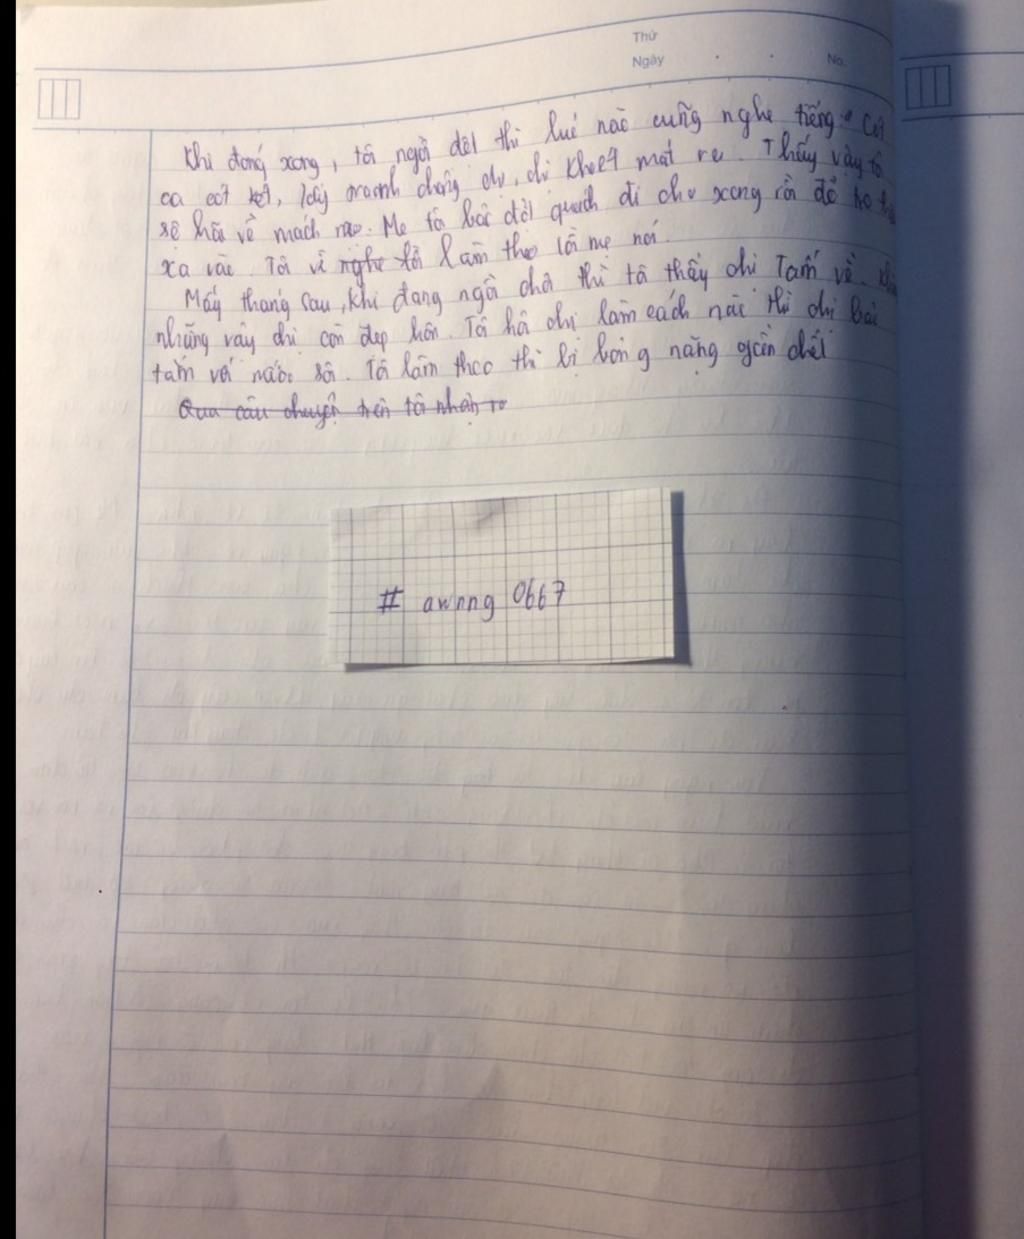 Thứ
Ngày No.
Khi đóng xong, tôi ngồi dệt thì lúc nào cũng nghe tiếng Cót
ca cót két, lấy tranh chồng chị, chị khoét mắt ra. Thấy vậy tô
sợ hãi về mách mẹ. Mẹ tôi bảo đốt quách đi cho xong rồi đổ
xa vào. Tôi vì nghe tôi làm theo lời mẹ nói.
Mấy tháng sau, khi đang ngồi chơi thì tôi thấy chị Tấm về.
những vậy chị còn đẹp hơn. Tôi hỏi chị làm cách nào thì chị bảo
tắm với nước sôi. Tôi làm theo thì bị bỏng nặng gần chết
Qua câu chuyện trên tôi nhận ra
# awnng 0667